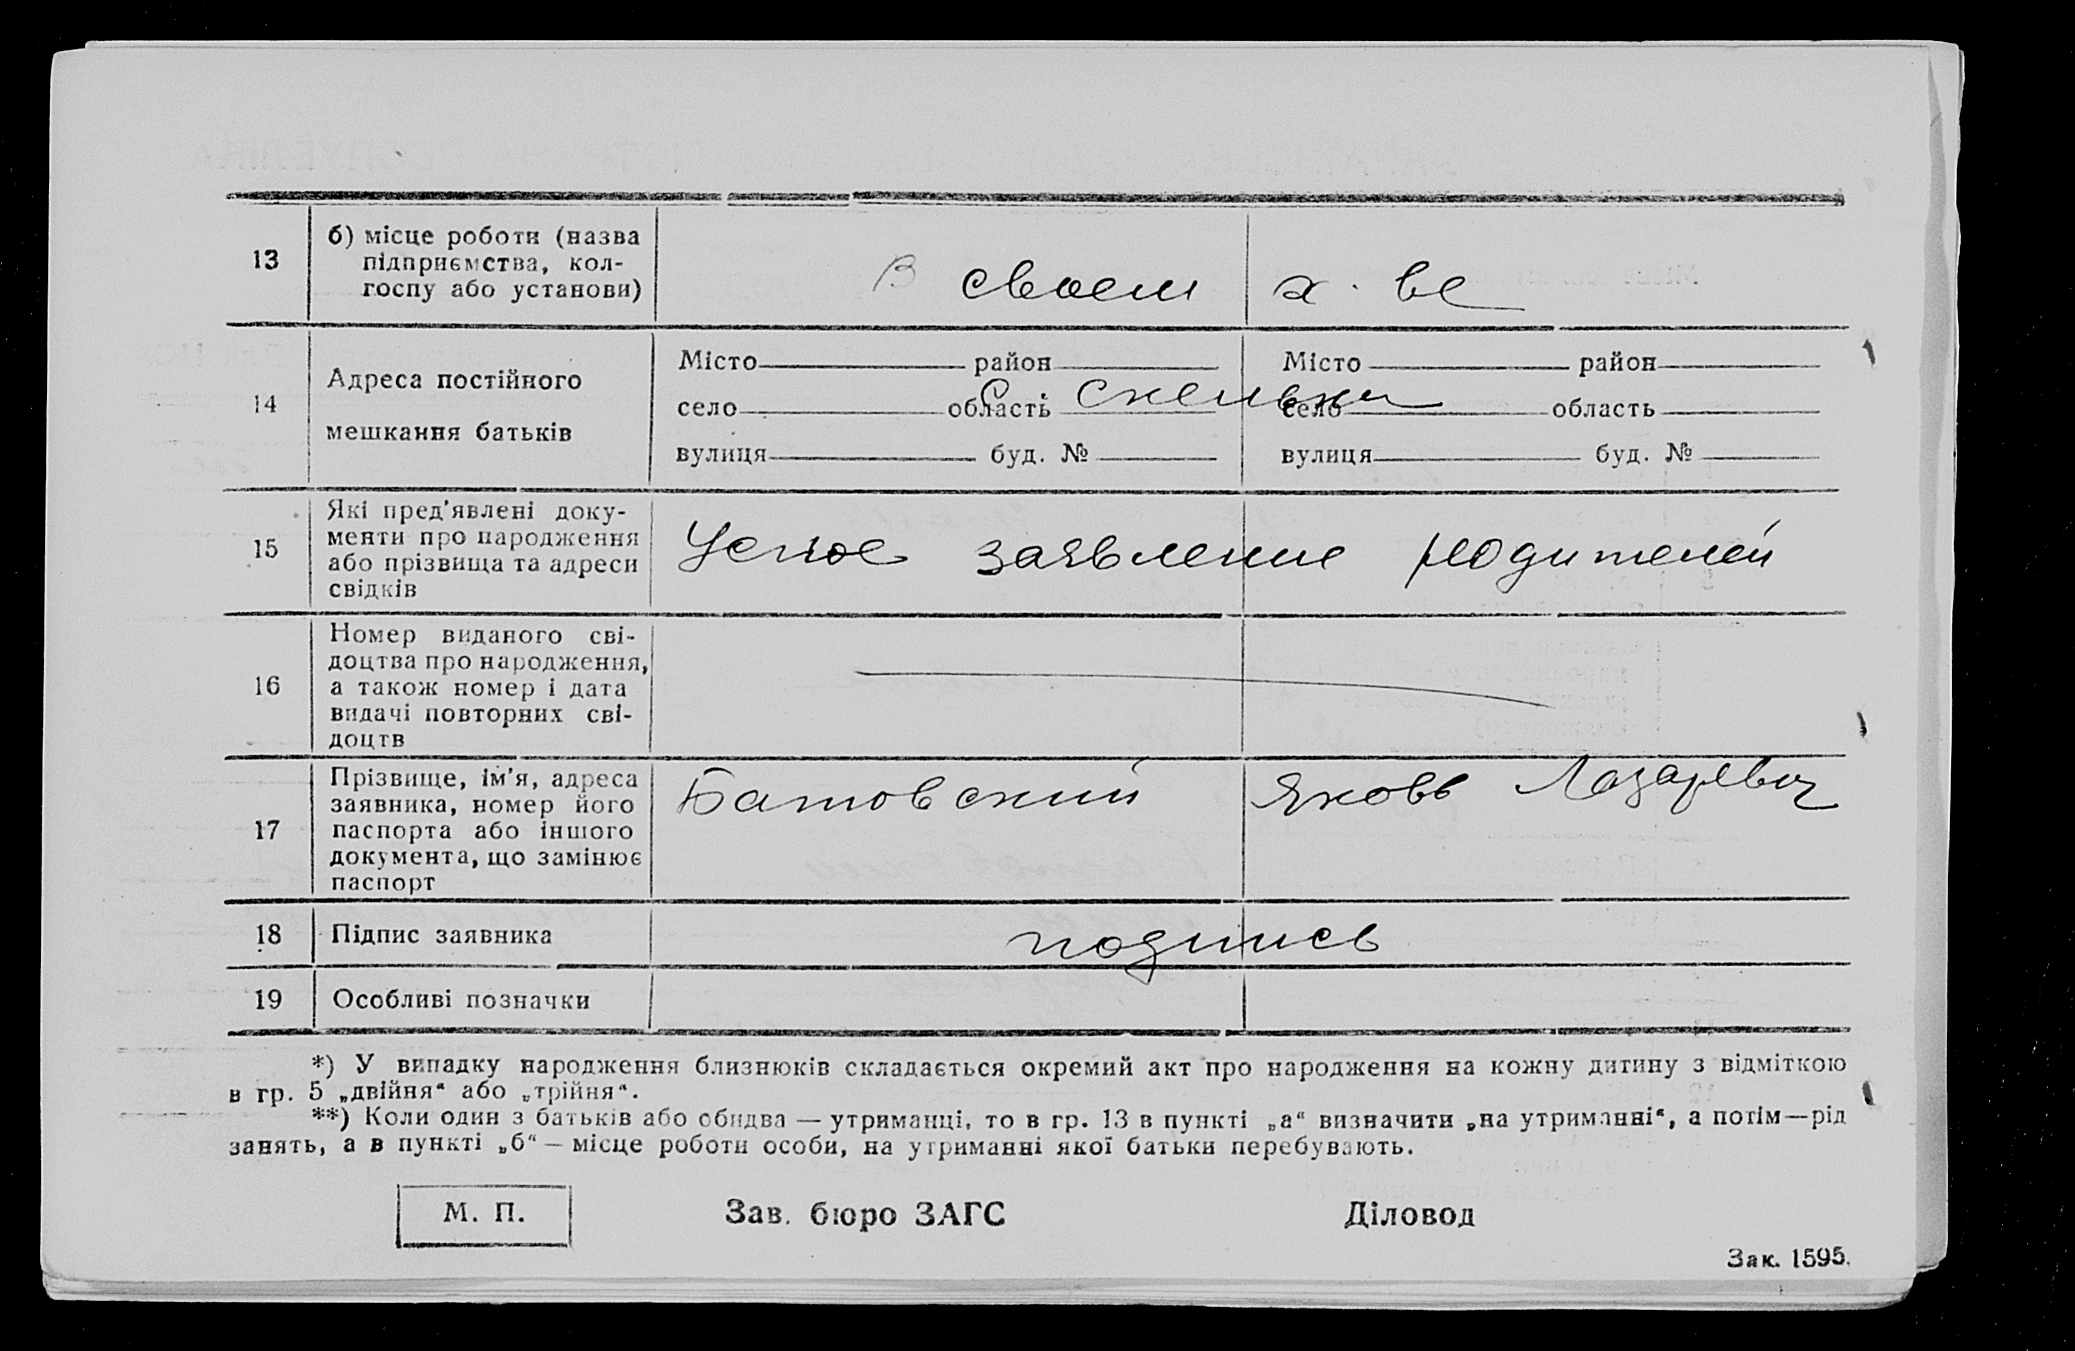 13
б) місце роботи (назва
підприємства, кол-
госпу або установи)
В своем х. ве
14
Адреса постійного
мешкання батьків
Місто район Місто район
село область село область
с. Скельки
вулиця буд. № вулиця буд. №
15
Які пред'явлені доку-
менти про народження
або прізвища та адреси
свідків
Устное заявление родителей
16
Номер виданого сві-
доцтва про народження,
а також номер і дата
видачі повторних сві-
доцтв
17
Прізвище, ім'я, адреса
заявника, номер його
паспорта або іншого
документа, що замінює
паспорт
Батовский Яковъ Лазаревич
18
Підпис заявника
подпись
19
Особливі позначки
*) У випадку народження близнюків складається окремий акт про народження на кожну дитину з відміткою
в гр. 5 „двійня“ або „трійня“.
**) Коли один з батьків або обидва — утриманці, то в гр. 13 в пункті „а“ визначити „на утриманні“, а потім—рід
занять, а в пункті „б“ — місце роботи особи, на утриманні якої батьки перебувають.
М. П.
Зав. бюро ЗАГС
Діловод
Зак. 1595.